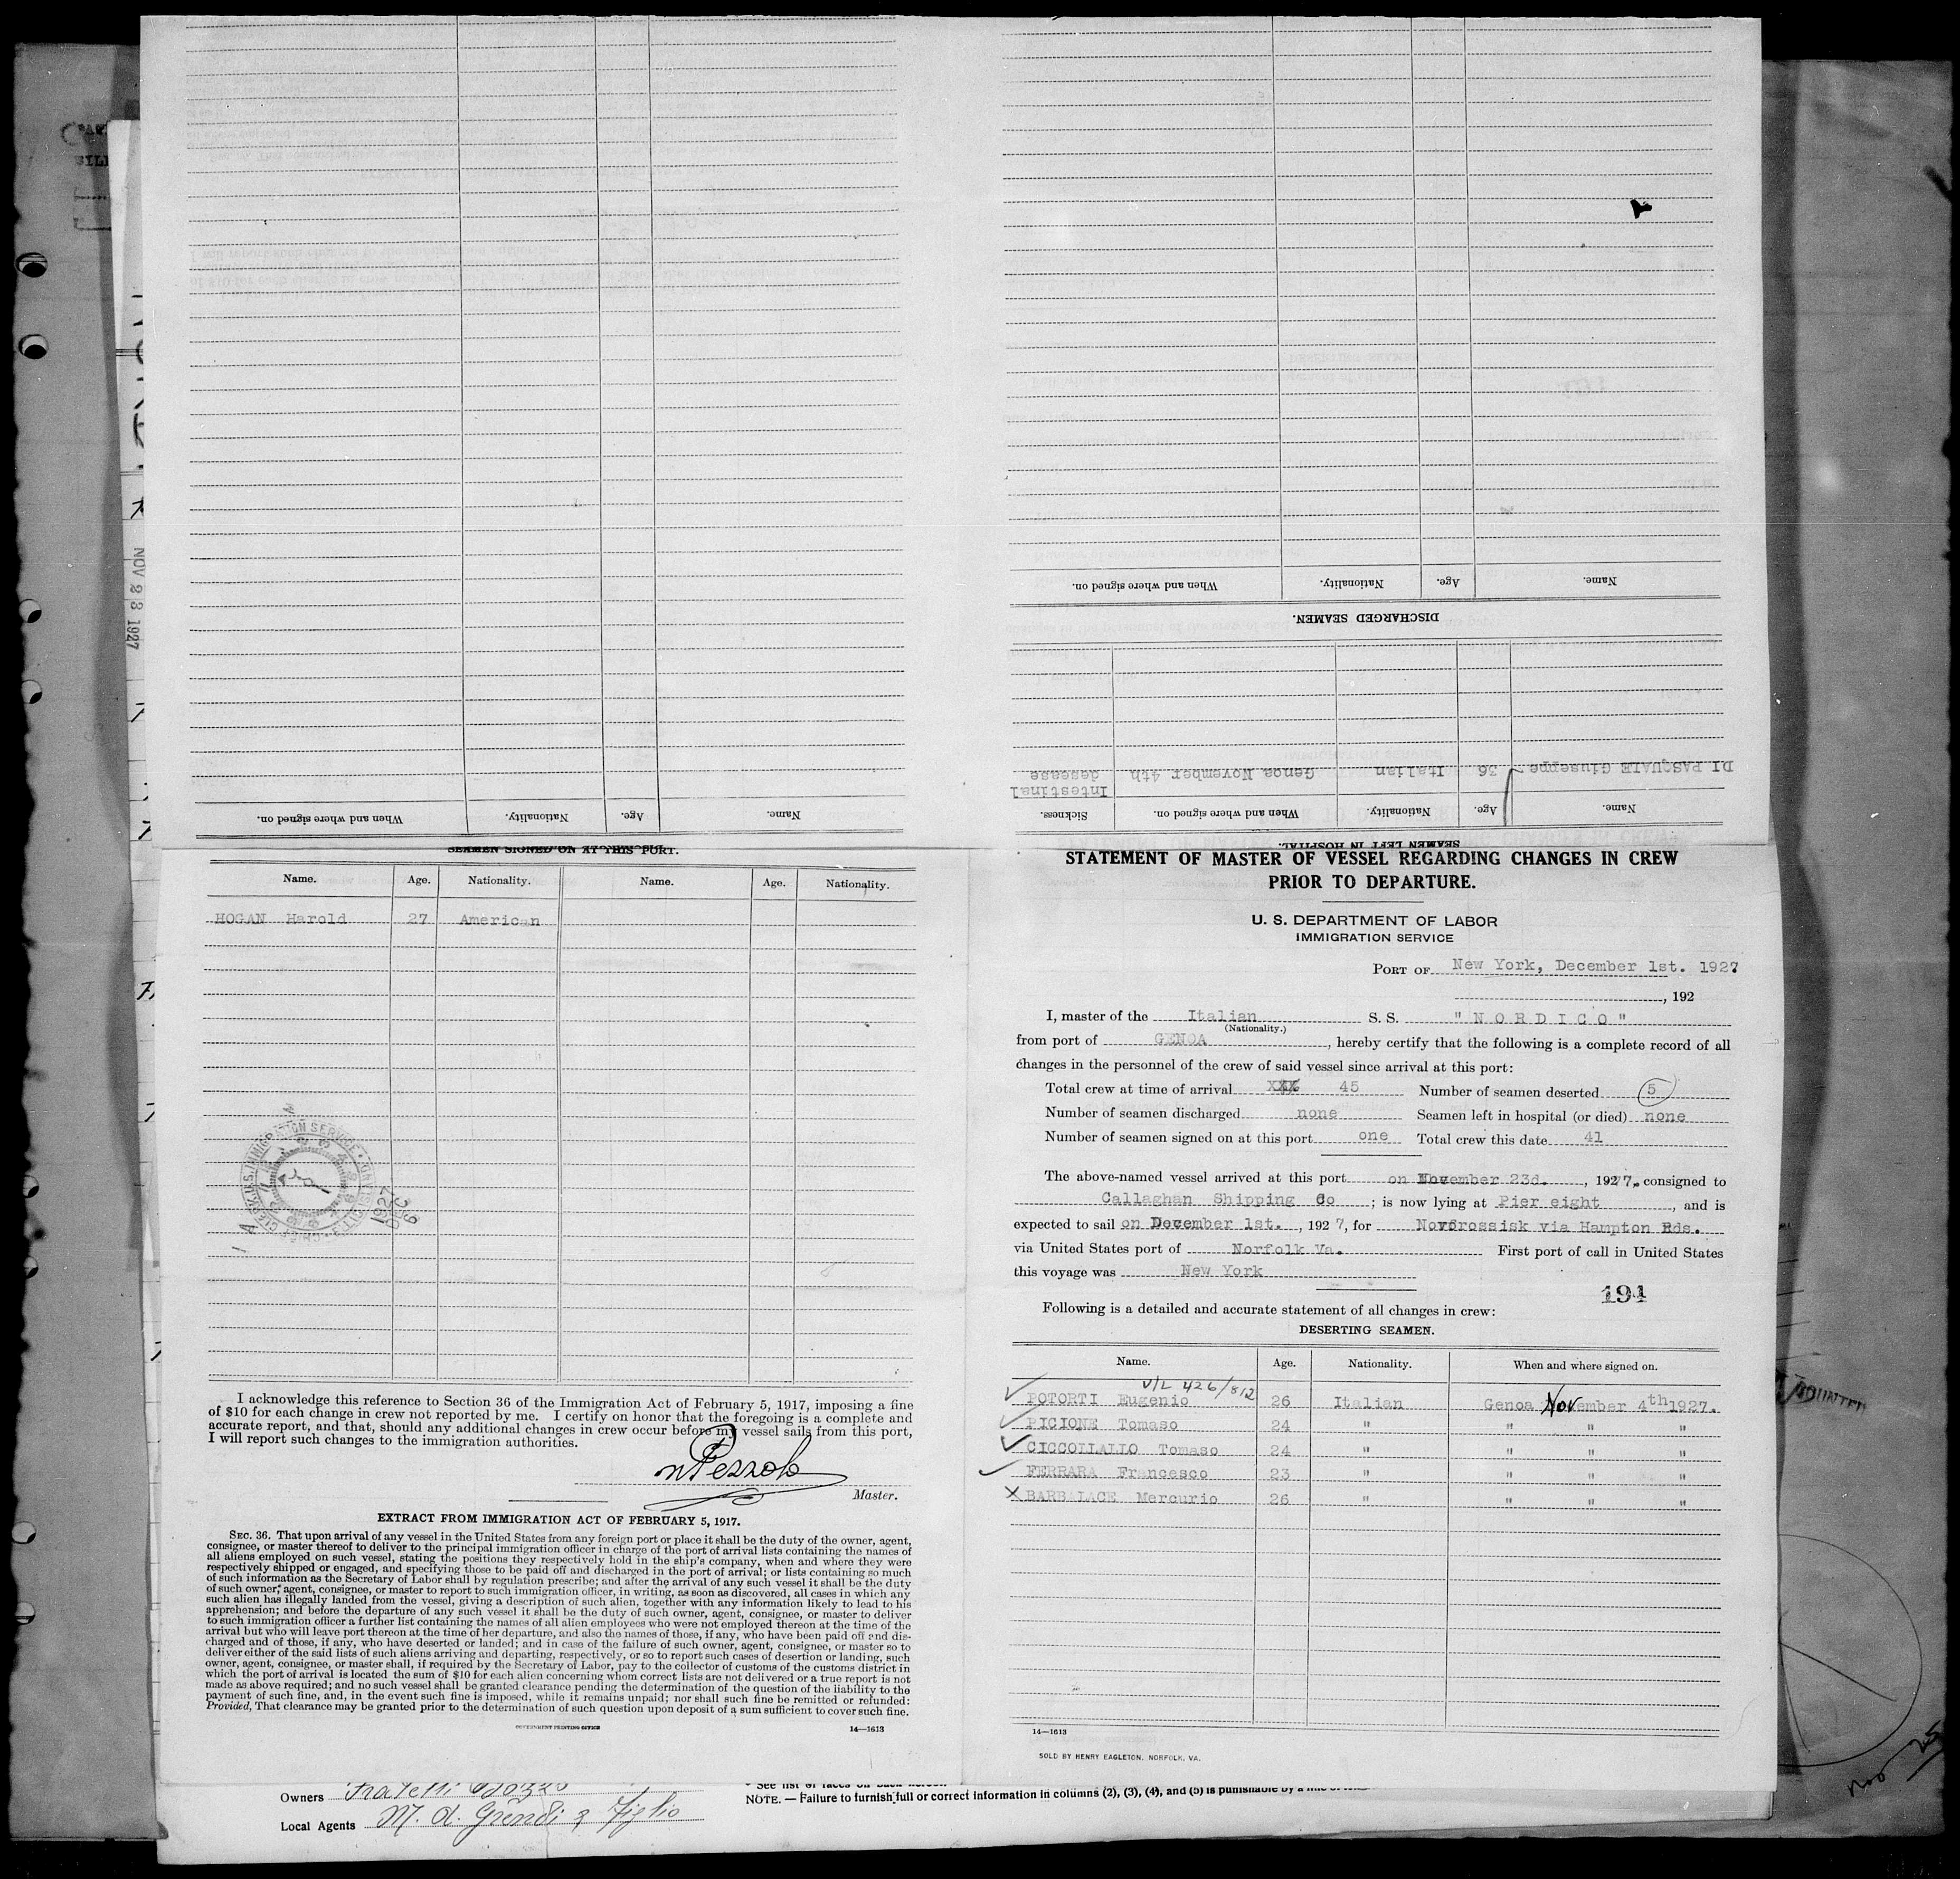 NOV 23 1927
When and where signed on. Nationality. Age. Name.
DISCHARGED SEAMEN.
When and where signed on. Nationality. Age. Name.
SEAMEN LEFT IN HOSPITAL.
Name. Age. Nationality. When and where signed on. Sickness.
DI PASQUALE Giuseppe 36 Italian Genoa November 4th Intestinal
desease
SEAMEN SIGNED ON AT THIS PORT.
Name. Age. Nationality. Name. Age. Nationality.
HOGAN Harold 27 American
I acknowledge this reference to Section 36 of the Immigration Act of February 5, 1917, imposing a fine
of $10 for each change in crew not reported by me. I certify on honor that the foregoing is a complete and
accurate report, and that, should any additional changes in crew occur before my vessel sails from this port,
I will report such changes to the immigration authorities.
Master.
EXTRACT FROM IMMIGRATION ACT OF FEBRUARY 5, 1917.
SEC. 36. That upon arrival of any vessel in the United States from any foreign port or place it shall be the duty of the owner, agent,
consignee, or master thereof to deliver to the principal immigration officer in charge of the port of arrival lists containing the names of
all aliens employed on such vessel, stating the positions they respectively hold in the ship's company, when and where they were
respectively shipped or engaged, and specifying those to be paid off and discharged in the port of arrival; or lists containing so much
of such information as the Secretary of Labor shall by regulation prescribe; and after the arrival of any such vessel it shall be the duty
of such owner, agent, consignee, or master to report to such immigration officer, in writing, as soon as discovered, all cases in which any
such alien has illegally landed from the vessel, giving a description of such alien, together with any information likely to lead to his
apprehension; and before the departure of any such vessel it shall be the duty of such owner, agent, consignee, or master to deliver
to such immigration officer a further list containing the names of all alien employees who were not employed thereon at the time of the
arrival but who will leave port thereon at the time of her departure, and also the names of those, if any, who have been paid off and dis-
charged and of those, if any, who have deserted or landed; and in case of the failure of such owner, agent, consignee, or master so to
deliver either of the said lists of such aliens arriving and departing, respectively, or so to report such cases of desertion or landing, such
owner, agent, consignee, or master shall, if required by the Secretary of Labor, pay to the collector of customs of the customs district in
which the port of arrival is located the sum of $10 for each alien concerning whom correct lists are not delivered or a true report is not
made as above required; and no such vessel shall be granted clearance pending the determination of the question of the liability to the
payment of such fine, and, in the event such fine is imposed, while it remains unpaid; nor shall such fine be remitted or refunded:
Provided, That clearance may be granted prior to the determination of such question upon deposit of a sum sufficient to cover such fine.
GOVERNMENT PRINTING OFFICE 14—1613
STATEMENT OF MASTER OF VESSEL REGARDING CHANGES IN CREW
PRIOR TO DEPARTURE.
U. S. DEPARTMENT OF LABOR
IMMIGRATION SERVICE
PORT OF New York, December 1st. 1927
, 192
I, master of the Italian S. S. "NORDICO"
(Nationality.)
from port of GENOA, hereby certify that the following is a complete record of all
changes in the personnel of the crew of said vessel since arrival at this port:
Total crew at time of arrival XXX 45 Number of seamen deserted 5
Number of seamen discharged none Seamen left in hospital (or died) none
Number of seamen signed on at this port one Total crew this date 41
The above-named vessel arrived at this port on November 23d., 1927, consigned to
Callaghan Shipping Co; is now lying at Pier eight, and is
expected to sail on December 1st., 1927, for Novorossisk via Hampton Rds.
via United States port of Norfolk Va. First port of call in United States
this voyage was New York
194
Following is a detailed and accurate statement of all changes in crew:
DESERTING SEAMEN.
Name. Age. Nationality. When and where signed on.
V/L 426/812
POTORTI Eugenio 26 Italian Genoa November 4th 1927.
PICIONE Tomaso 24 " " " "
CICCOLLALLO Tomaso 24 " " " "
FERRARA Francesco 23 " " " "
BARBALACE Mercurio 26 " " " "
14—1613
SOLD BY HENRY EAGLETON, NORFOLK, VA.
Owners Fratelli
Local Agents M. A. Grendi & Figlio
NOTE. — Failure to furnish full or correct information in columns (2), (3), (4), and (5) is punishable by a
Nov 25